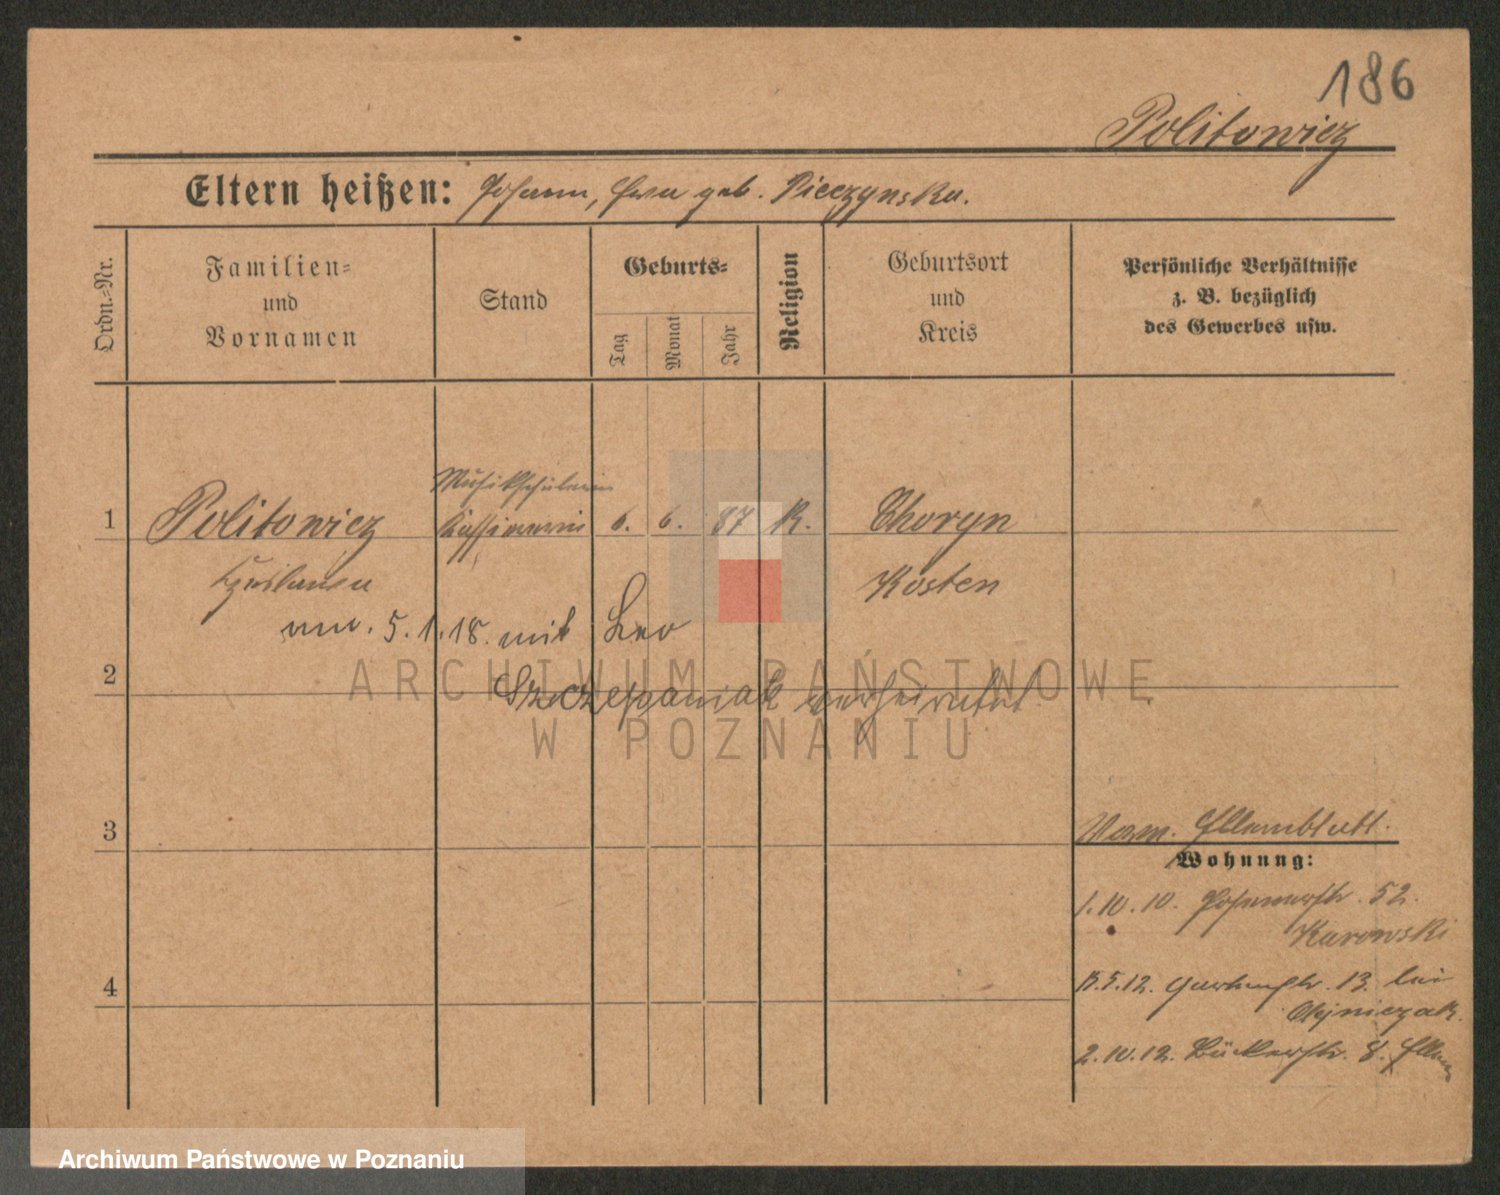 186
Politowicz
Eltern heißen: Johann, Eva geb. Pieczynska.
Ordn.-Nr.
Familien-
und
Vornamen
Stand
Geburts-
Tag
Monat
Jahr
Religion
Geburtsort
und
Kreis
Persönliche Verhältnisse
z. B. bezüglich
des Gewerbes usw.
Musikschülerin
1 Politowicz Kassiererin 6. 6. 87 K. Choryn
Kosten
am. 5.1.18. mit Leo
2
Szczepaniak verheiratet
3
Vorm. Elternblatt.
Wohnung:
1.10.10. Posenerstr. 52.
Kurowski
4
5.12. Gartenstr. 13. bei
Olejniczak.
2.10.12. Bäckerstr. 8. Eltern
ARCHIWUM PAŃSTWOWE
W POZNANIU
Archiwum Państwowe w Poznaniu